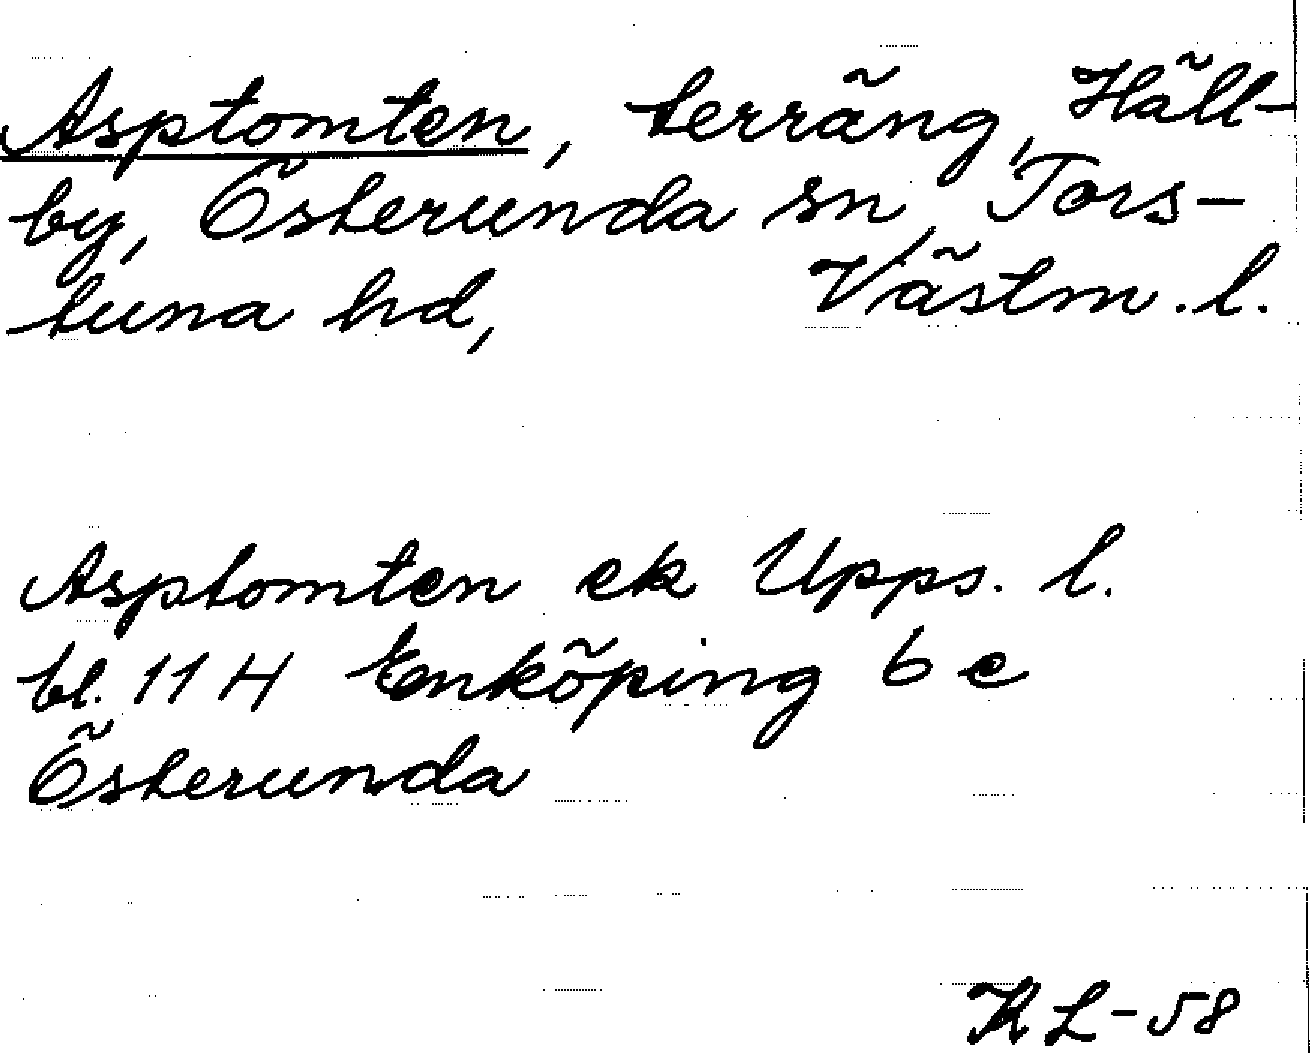 Asptomten, terräng, Häll-
by, Österunda sn Tors-
tuna hd, Västm. l.
Asptomten ek Upps. l.
bl. 114 Enköping 6 e
Österunda
KL-58